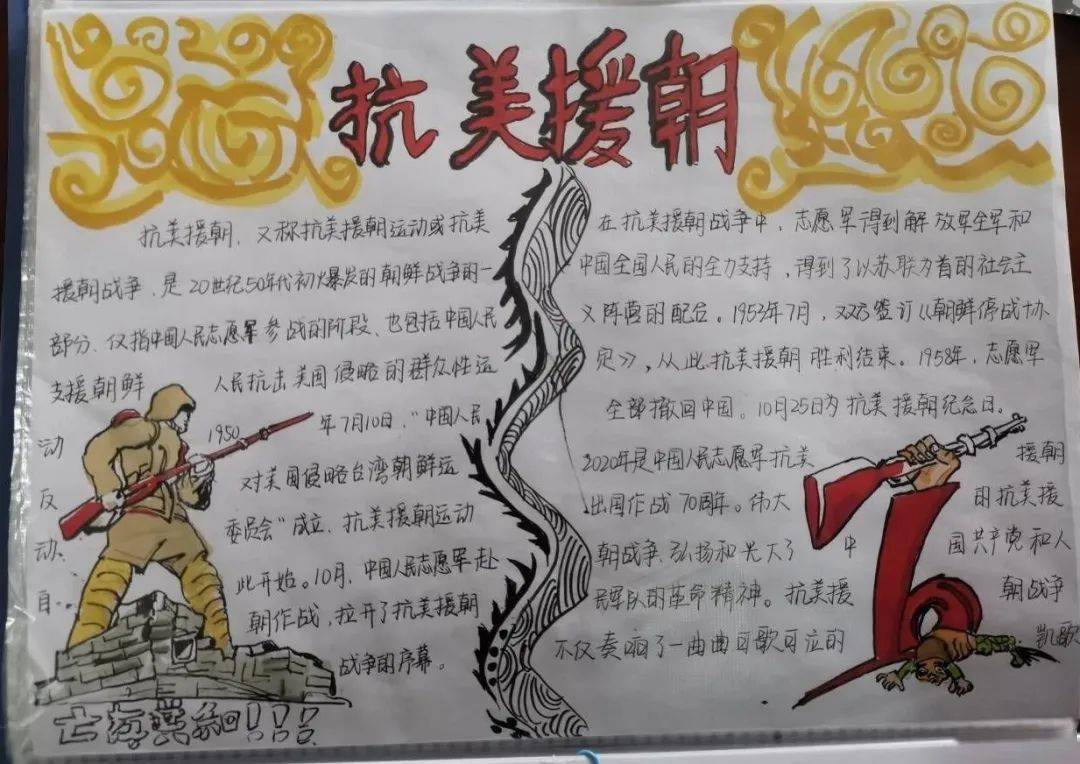 抗美援朝
抗美援朝，又称抗美援朝运动或抗美
援朝战争，是20世纪50年代初爆发的朝鲜战争的一
部分、仅指中国人民志愿军参战的阶段、也包括中国人民
支援朝鲜 人民抗击美国侵略的群众性运
动 1950 年7月10日，“中国人民
反 对美国侵略台湾朝鲜运
动、 委员会”成立，抗美援朝运动
自... 此开始。10月，中国人民志愿军赴
朝作战，拉开了抗美援朝
战争的序幕。
在抗美援朝战争中，志愿军得到解放军全军和
中国全国人民的全力支持，得到了以苏联为首的社会主
义阵营的配合。1953年7月，双方签订《朝鲜停战协
定》，从此抗美援朝胜利结束。1958年，志愿军
全部撤回中国。10月25日为抗美援朝纪念日。
2020年是中国人民志愿军抗美 援朝
出国作战70周年。伟大 的抗美援
朝战争、弘扬和光大了 中 国共产党和人
民军队的革命精神。抗美援 朝战争
不仅奏响了一曲曲可歌可泣的 凯歌
70